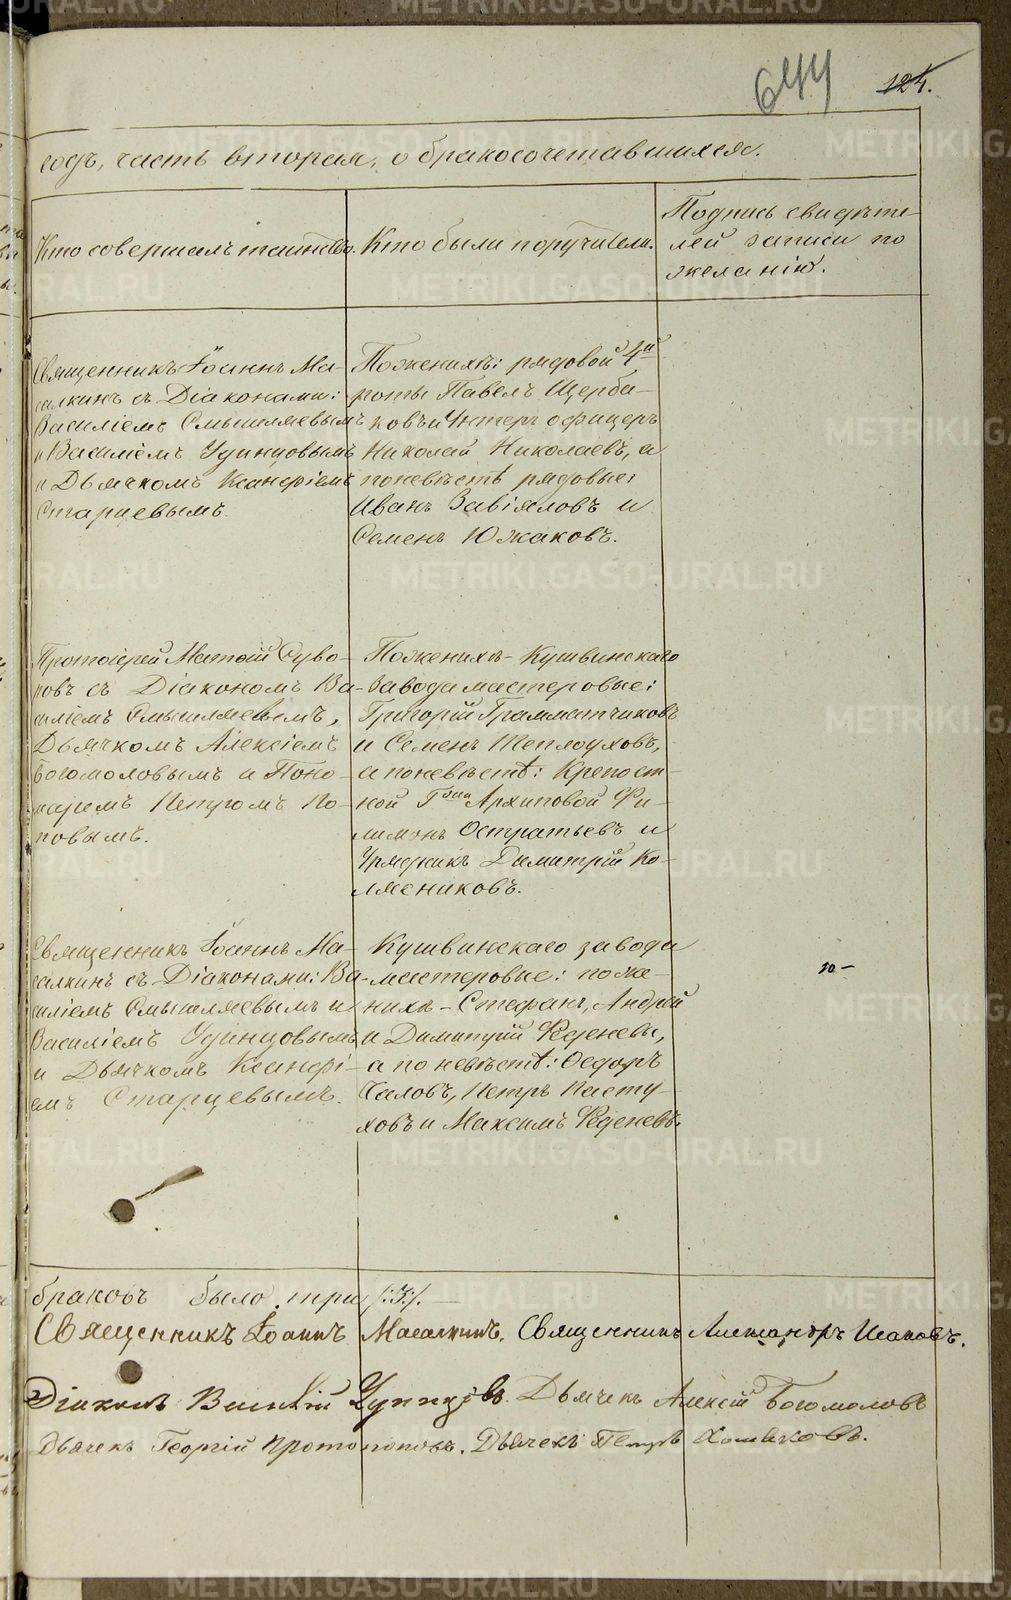 644 124.
годъ, часть вторая, о бракосочетавшихся.
Кто совершалъ таинство.
Кто были поручители.
Подпись свидѣте-
лей записи по
желанію.
Священникъ Іоаннъ Ма-
салкинъ съ Діаконами:
Василіемъ Смышляевымъ
и Василіемъ Удинцовымъ
и Дьячкомъ Ксенофіемъ
Старцевымъ.
По женихѣ: рядовой 4й
роты Павелъ Щерба-
ковъ и Унтеръ офицеръ
Николай Николаевъ, а
по невѣстѣ рядовые:
Иванъ Завіяловъ и
Семенъ Южаковъ.
Протоіерей Матѳій Суво-
ровъ съ Діакономъ Ва-
силіемъ Смышляевымъ,
Дьячкомъ Алексіемъ
Богомоловымъ и Поно-
маремъ Петромъ По-
повымъ.
По женихѣ - Кушвинскаго
завода мастеровые:
Григорій Грамматчиковъ
и Семенъ Теплоуховъ,
а по невѣстѣ: Крепост-
ной Гжи Архиповой Фи-
лимонъ Остратьевъ и
Урядникъ Димитрій Ко-
лясниковъ.
Священникъ Іоаннъ Ма-
салкинъ съ Діаконами: Ва-
силіемъ Смышляевымъ и
Василіемъ Удинцовымъ
и Дьячкомъ Ксенофі-
емъ Старцевымъ.
Кушвинскаго завода
мастеровые: по же-
нихѣ - Стефанъ, Андрей
и Димитрій Феденевы,
а по невѣстѣ: Ѳедоръ
Саловъ, Петръ Пасту-
ховъ и Максимъ Феденевъ.
браковъ было три /:3:/. —
Священникъ Іоаннъ Масалкинъ. Священникъ Александръ Исаковъ.
Діаконъ Василій Удинцовъ. Дьячекъ Алексій Богомоловъ
Дьячекъ Георгій Протопоповъ. Дьячекъ Петръ Хомяковъ.